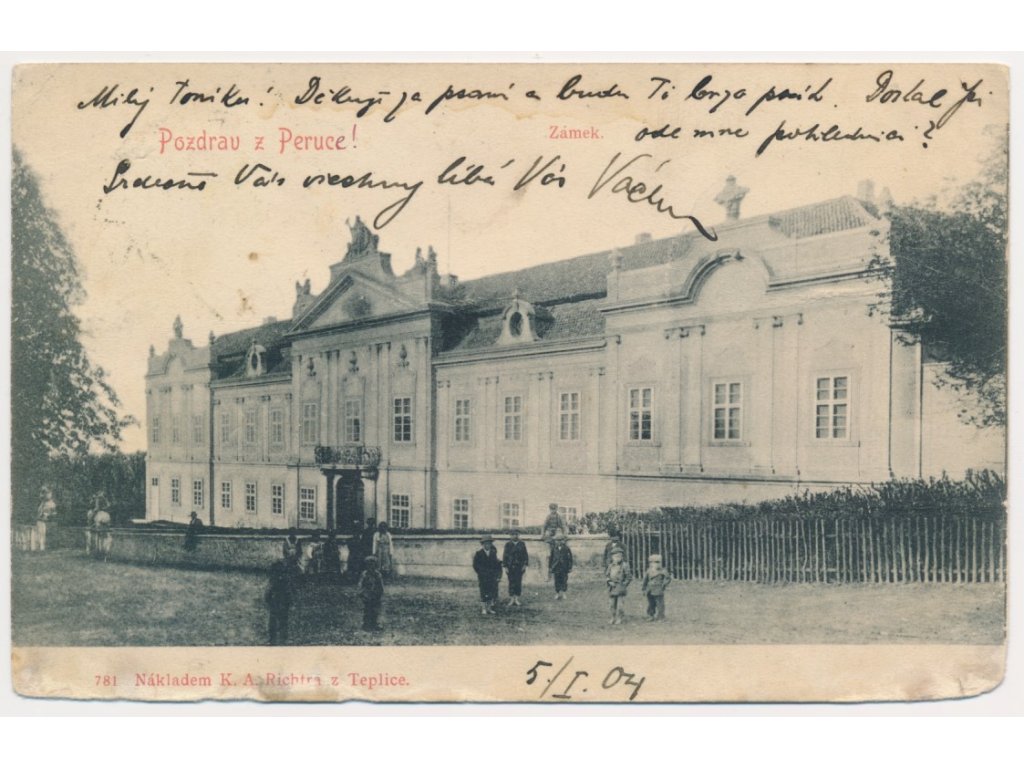 Milý Toníku! Děkuji za psaní a budu Ti brzo psát. Dostal jsi
Pozdrav z Peruce!
Zámek.
ode mne pohlednici?
Srdečně Vás všechny líbá Váš
781 Nákladem K. A. Richtra z Teplice.
5/I. 04